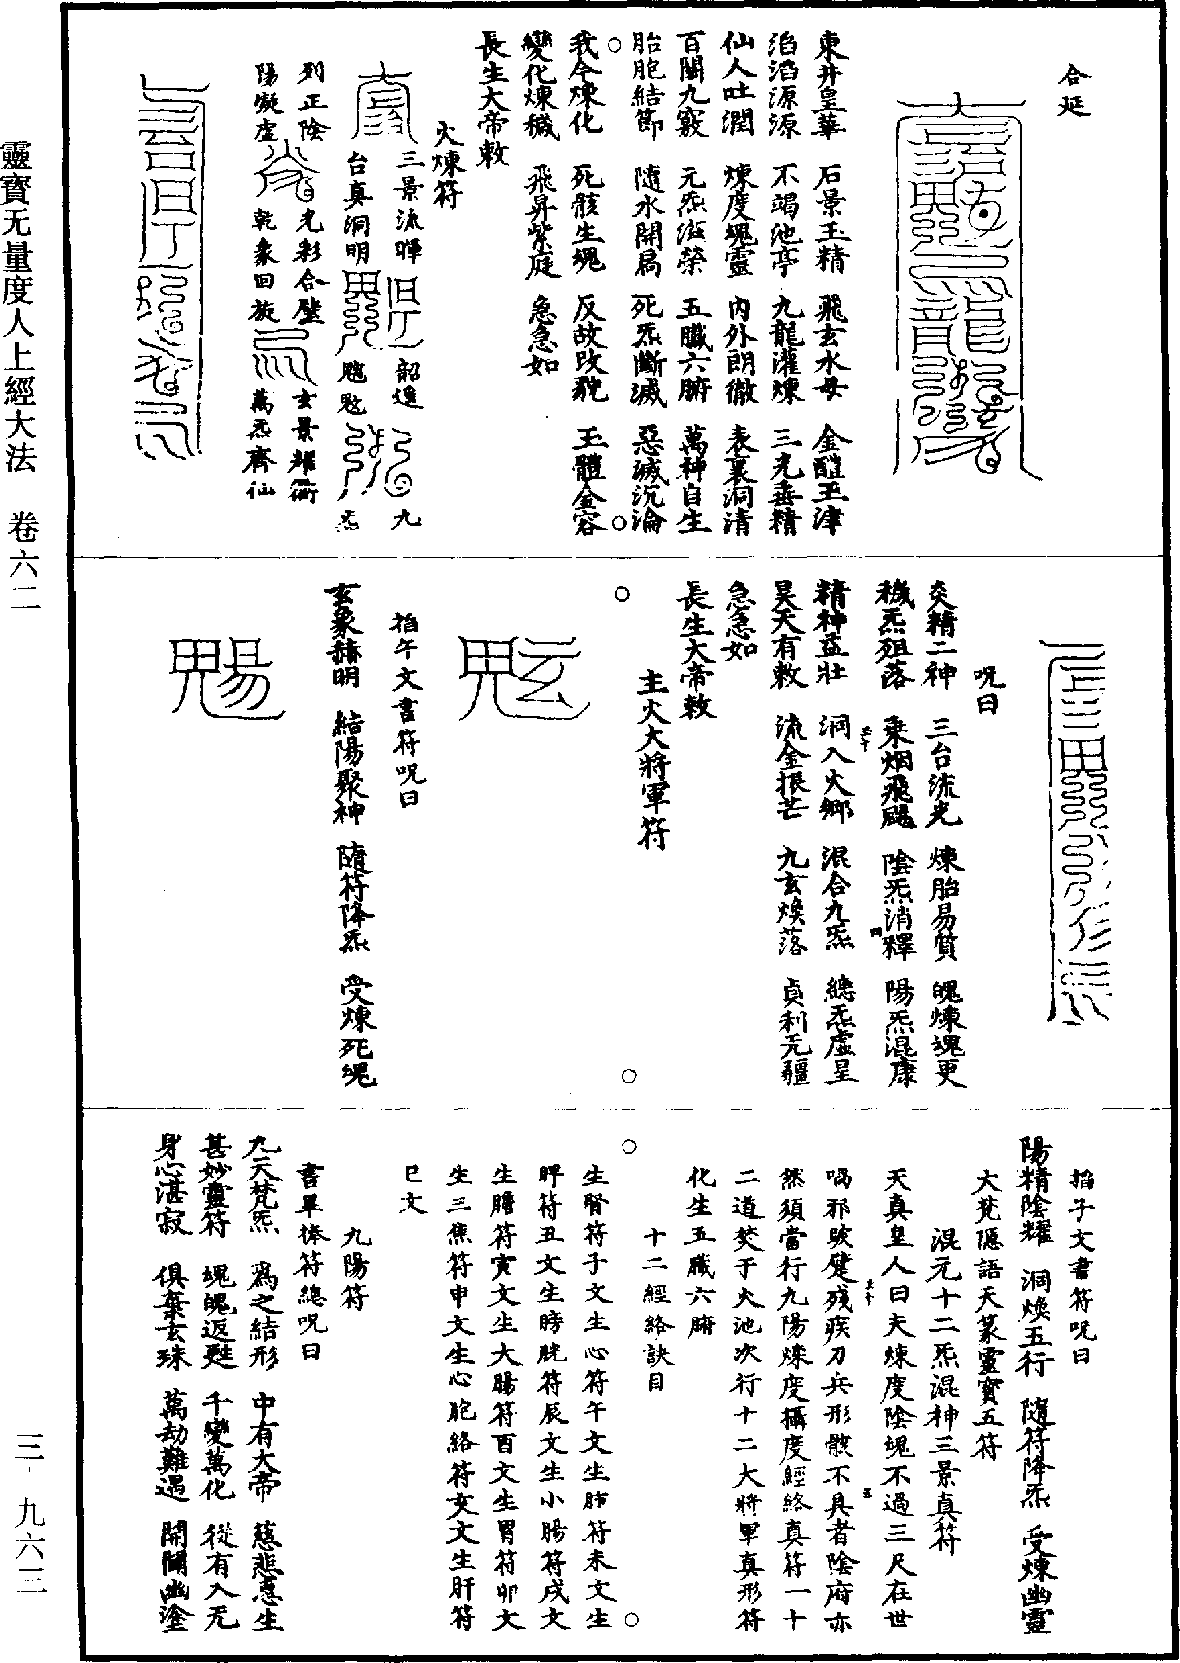 合延
東井皇華 石景玉精 飛玄水母 金醴玉津
滔滔源源 不竭池亭 九龍灌煉 三光垂精
仙人吐潤 煉度魂靈 內外朗徹 表裏洞清
百關九竅 元炁滋榮 五臟六腑 萬神自生
胎胞結節 隨水開扃 死炁斷滅 惡滅沉淪
我今煉化 死骸生魂 反故改貌 玉體金容
變化煉穢 飛昇紫庭 急急如
長生大帝敕
火煉符
三景流暉 韶遥 九
台真洞明 魒魁 炁
列正陰 光彩合璧 玄景耀衝
陽凝虛 乾象回旋 萬炁齊仙
呪曰
炎精二神 三台流光 煉胎易質 魄煉魂更
穢炁殂落 乗烟飛颺 陰炁消釋 陽炁混康
精神益壯 洞入火鄉 混合九炁 總炁虛呈
昊天有敕 流金振芒 九玄煥落 貞利无疆
急急如
長生大帝敕
主火大將軍符
掐午文書符呪曰
玄象赫明 結陽聚神 隨符降炁 受煉死魂
掐子文書符呪曰
陽精陰耀 洞煥五行 隨符降炁 受煉幽靈
大梵隱語天篆靈寶五符
混元十二炁混神三景真符
天真皇人曰夫煉度陰魂不過三尺在世
喎邪跛躄殘疾刀兵形骸不具者陰府亦
然須當行九陽煉度攝度經絡真符一十
二道焚于火池次行十二大將軍真形符
化生五臟六腑
十二經絡訣目
生腎符子文生心符午文生肺符未文生
脾符丑文生膀胱符辰文生小腸符戌文
生膽符寅文生大腸符酉文生胃符卯文
生三焦符申文生心胞絡符亥文生肝符
巳文
九陽符
書畢捧符總呪曰
九天梵炁 爲之結形 中有大帝 慈悲惠生
甚妙靈符 魂魄返甦 千變萬化 從有入无
身心湛寂 俱棄玄珠 萬劫難遇 開闢幽塗
靈寶无量度人上經大法 卷六二
三·九六三